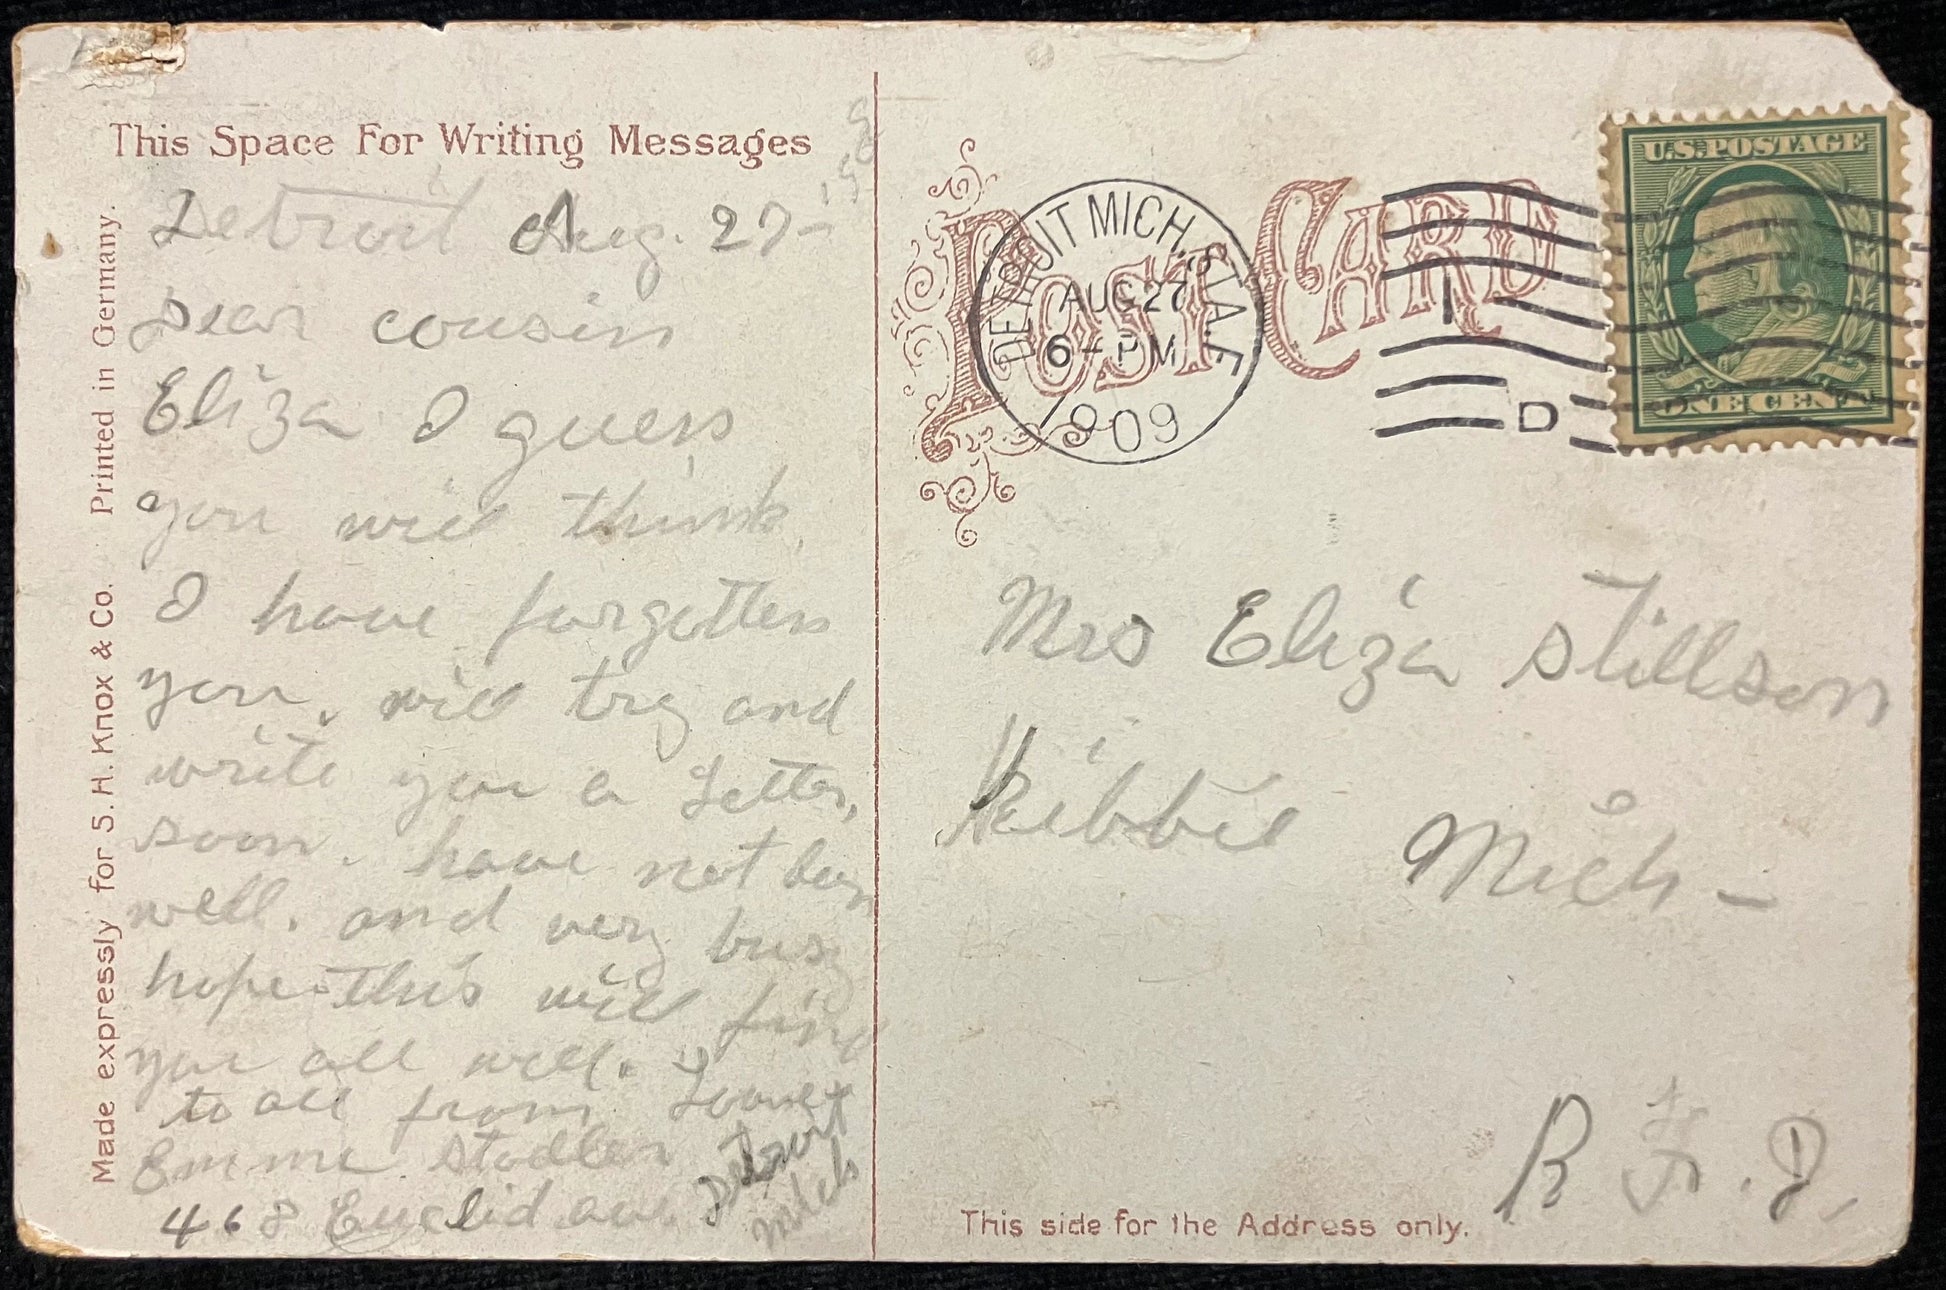 This Space For Writing Messages
Detroit Aug. 27-
Dear cousin
Eliza I guess
you will think
I have forgotten
you. will try and
write you a Letter,
soon. have not ben
well. and very busy
hope this will find
you all well.
to all from
Emma
468 Euclid ave Detroit
Mich
Made expressly for S. H. Knox & Co. Printed in Germany.
POST CARD
DETROIT MICH. STA. F
AUG 27
6 - PM
1909
1
D
U.S. POSTAGE
ONE CENT
Mrs Eliza Stillson
Kibbie Mich -
R. F. D.
This side for the Address only.